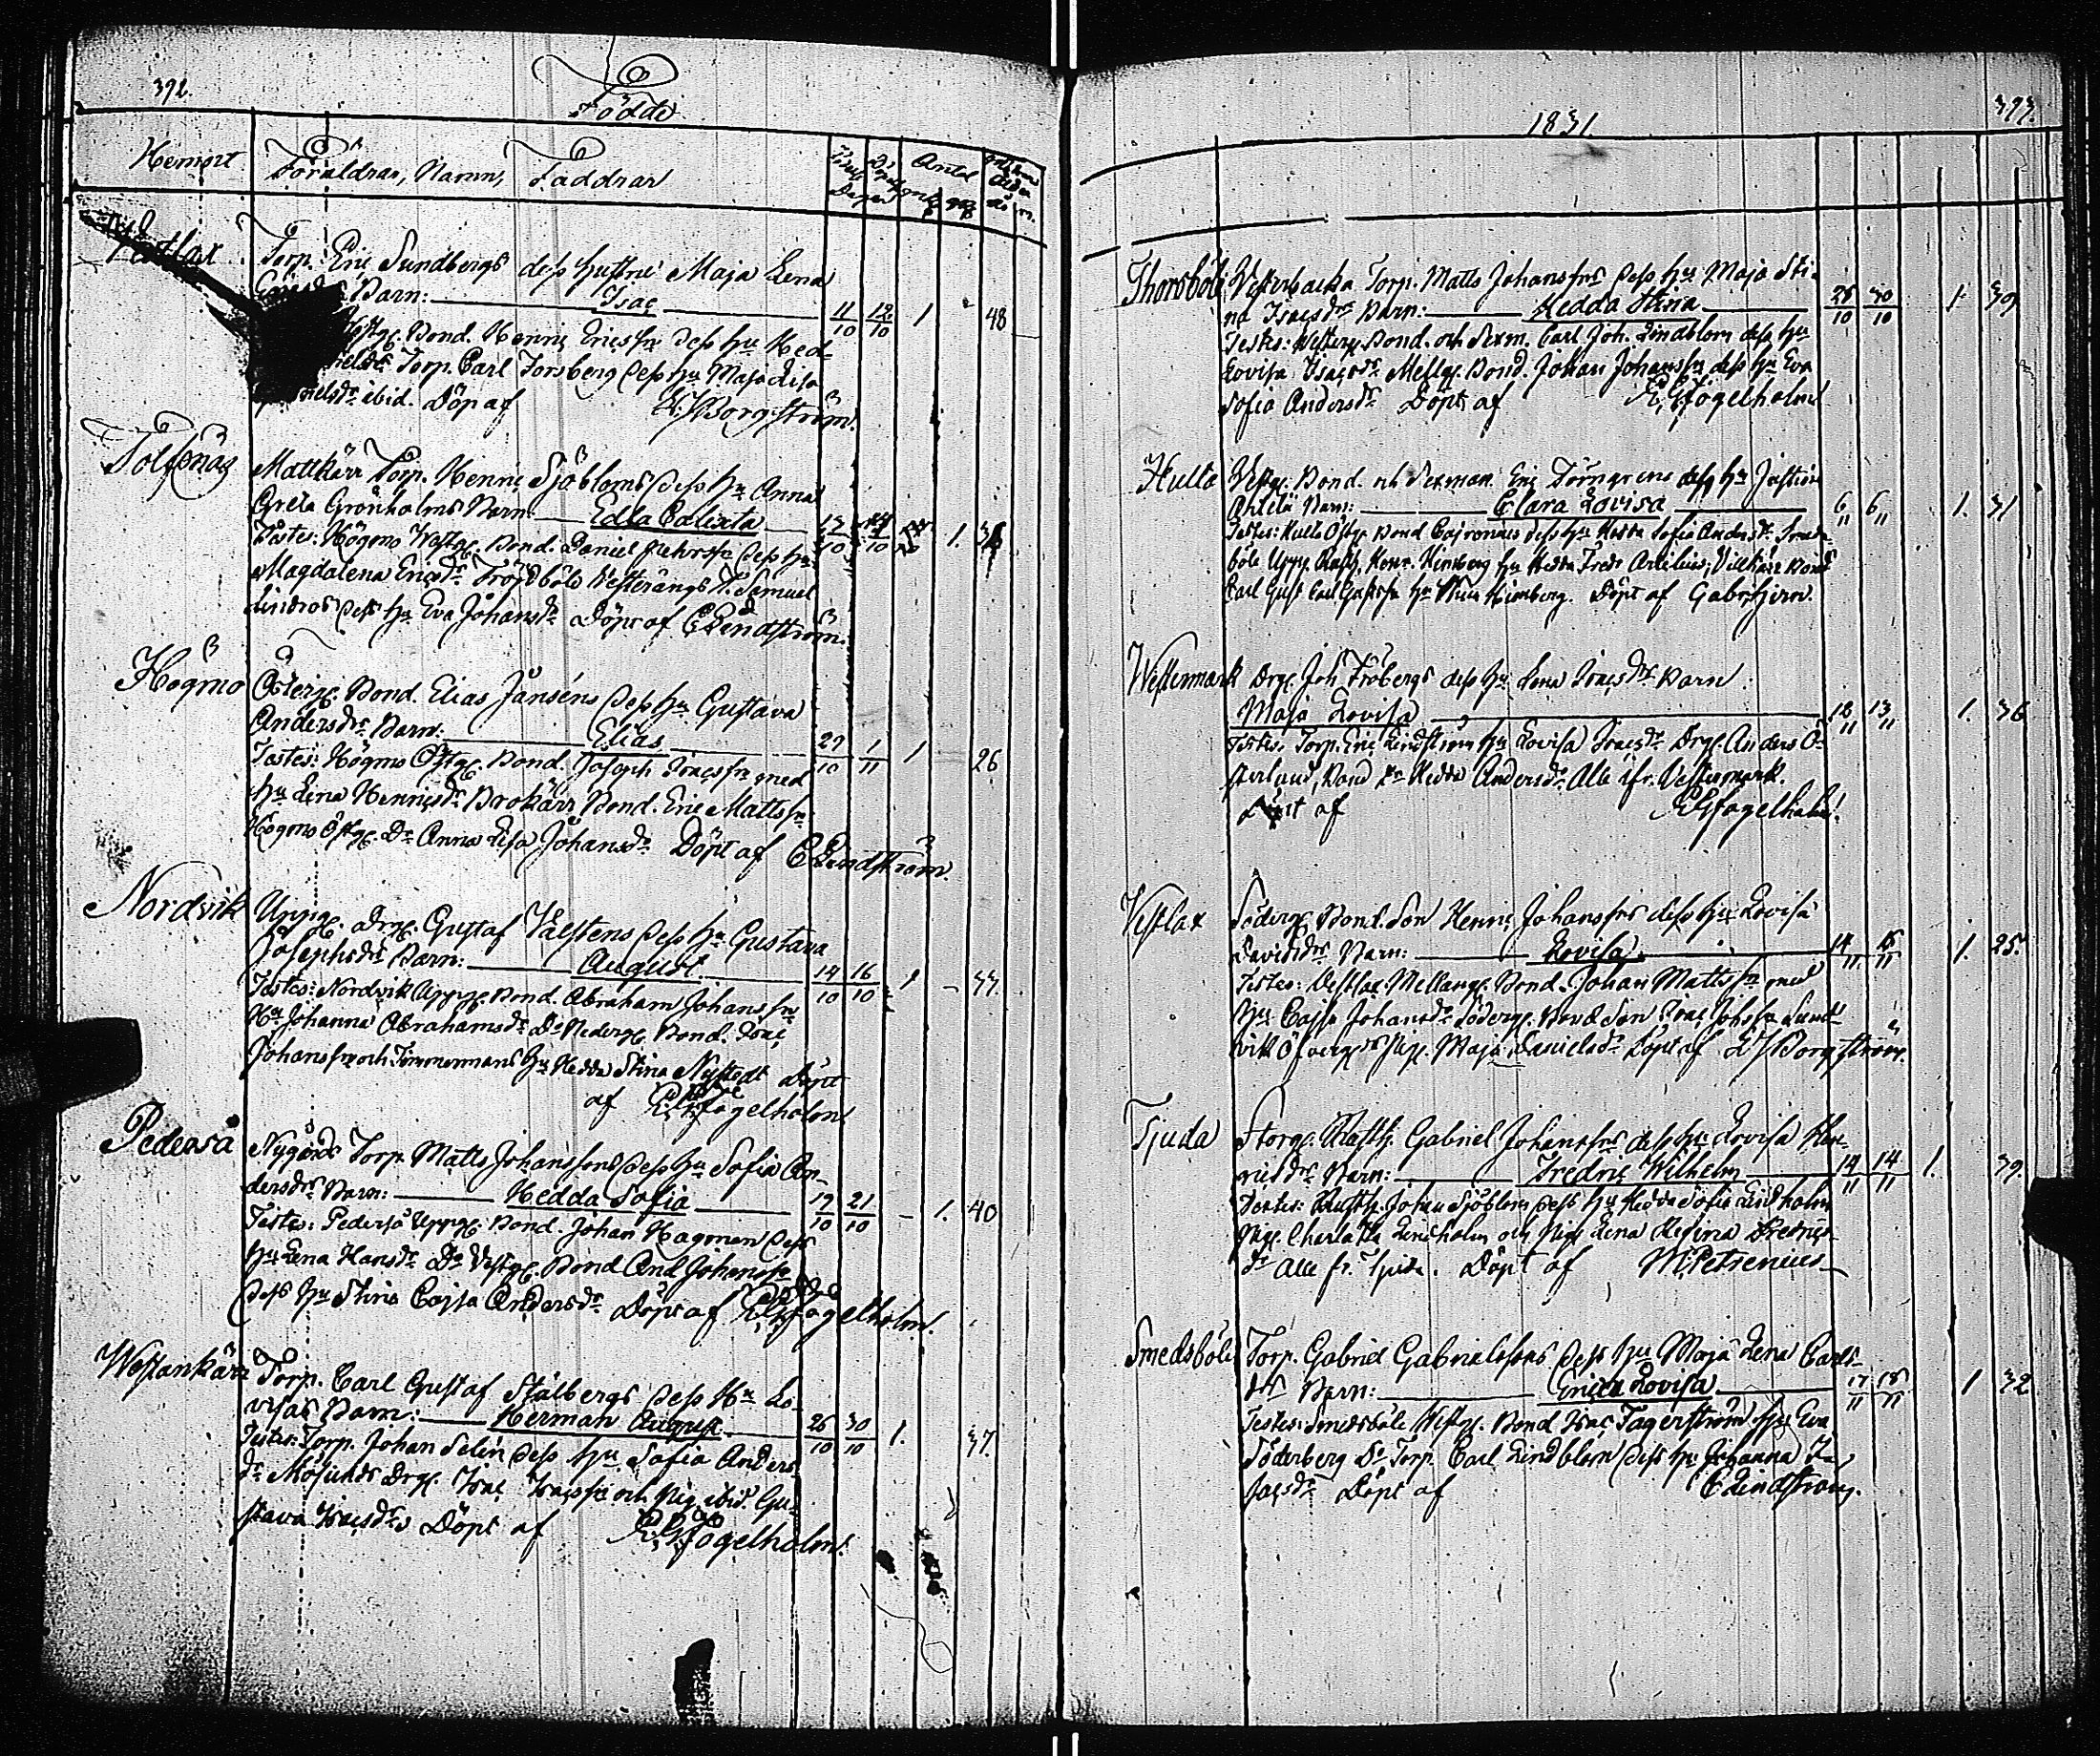 392.
Födde
Hemort Föräldrar, Namn, Faddrar
Födelse Döpelse Dagen Antal
Vestlax Torp. Eric Sundbergs dess hustru Maja Lena
Barn: Isac 11/10 12/10 1 48
Bond. Henric Ericssn dess hu Hed-
Torp. Carl Forsberg dess hu Maja Lisa
ibid. Döp af Borgström.
Tolfsnäs Mattkärr Torp. Henric Sjöbloms dess hu Anna
Greta Grönholms Barn Edla Calixta 13/10 14/10 1.
Testes: Högmo Westg. Bond. Daniel dess hu
Magdalena Ericsdr Tröjsböle Westerängs T. Samuel
Lindros dess hu Eva Johansdr Döpt af C Lindström.
Högmo Österg. Bond. Elias Janséns dess hu Gustava
Andersdrs Barn: Elias 27/10 1/11 1 26
Testes: Högmo Östg. Bond. Joseph Isacssn med
hu Lena Henricsdr Brokärr Bond. Eric Mattssn
Högmo Östg. Dr Anna Lisa Johansdr Döpt af C Lindström.
Nordvik Uppg. Drg. Gustaf Valstens dess hu Gustava
Josephsdrs Barn: August 14/10 16/10 1 - 33.
Testes: Nordvik Uppg. Bond. Abraham Johanssn
Hu Johanna Abrahamsdr Do Nederg. Bond. Isac
Johanssn och Timmermans hu Hedda Stina Nystedt Döpt
af Fogelholm
Pederså Nygårds Torp. Matts Johanssons dess hu Sofia An-
dersdrs Barn: Hedda Sofia 19/10 21/10 - 1. 40
Testes: Pederså Uppg. Bond. Johan Hagman dess
hu Lena Hansdr Do Vestg. Bond And. Johanssn
dess hu Stina Cajsa Andersdr Döpt af Fogelholm.
Westankärr Torp. Carl Gustaf Stålbergs dess Hu Lo-
visas Barn: Herman August 26/10 30/10 1. 37.
Testes: Torp. Johan Selin dess hu Sofia Anders
dr Mosunds Drg. Isac Isacssn och Pig. ibid. Gu-
stava Isacsdr Döpt af Fogelholm.
1831
393.
Thorsböle Vesterbacka Torp. Matts Johanssns dess hu Maja Sti-
na Isacsdrs Barn: Hedda Stina 28/10 30/10 1 39
Testes: Westerg. Bond. och Sexm. Carl Joh. Lindblom dess hu
Lovisa Isacsdr Mellg. Bond. Johan Johanssn dess hu Eva
Sofia Andersdr Döpt af Fogelholm
Hulta Vestg. Bond. och Sexman Eric Törngrens dess hu Justina
Barn: Clara Lovisa 6/11 6/11 1. 31
Testes: Hulta Östg. Bond dess hu Hedda Sofia Andersdr
böle Uppg. Himberg hu Hedda Fredr.
Carl Gust. hu Himberg. Döpt af
Westermark Drg. Joh Fröbergs dess hu Lena Isacsdrs Barn
Maja Lovisa 12/11 13/11 1. 36
Testes: Torp. Eric Lindström hu Lovisa Isacsdr Drg. Anders Ö-
sterlund, Bond hu Hedda Andersdr Alle ifr. Vestermark.
Döpt af Fogelholm.
Vestlax Söderg. Bond. Son Henric Johanssns dess hu Lovisa
Davidsdrs Barn: Lovisa 14/11 15/11 1. 25.
Testes: Vestlax Mellang. Bond. Johan Mattssn med
hu Cajsa Johansdr Söderg. Bond Son Isac Johssn Sund-
vik Öfvergårds Pig. Maja Danielsdr Döpt af Borgström.
Tjuda Storg. Gabriel Johanssns dess hu Lovisa Hen-
ricsdrs Barn: Fredric Wilhelm 14/11 14/11 1. 39.
Testes: Johan Sjöblom dess hu Hedda Sofia Lindholm
Pige Charlotta Lindholm och Pige Lena Regina Fredrics-
dr Alle fr. Tjuda. Döpt af M. Petrenius
Smedsböle Torp. Gabriel Gabrielssons dess hu Maja Lena Carls-
drs Barn: Erica Lovisa 17/11 18/11 1 32
Testes: Smedsböle Westg. Bond Isac Fagerström hu Eva
Söderberg Do Torp. Carl Lindblom dess hu Johanna I-
sacsdr Döpt af C Lindström.